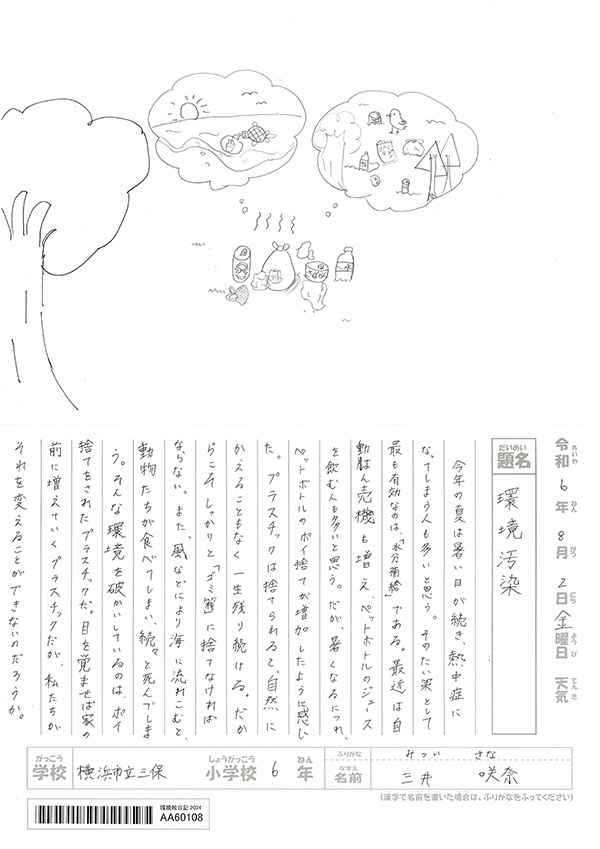 令和6年8月2日金曜日 天気
れいわ ねん がつ にち ようび てんき
だいめい
題名
環境汚染
今年の夏は暑い日が続き、熱中症に
なってしまう人も多いと思う。そのたい策として
最も有効なのは、「水分補給」である。最近は自
動はん売機も増え、ペットボトルのジュース
を飲む人も多いと思う。だが、暑くなるにつれ、
ペットボトルのポイ捨てが増加したように感じ
た。プラスチックは捨てられると、自然に
かえることもなく一生残り続ける。だか
らこそしっかりと「ゴミ箱」に捨てなければ
ならない。また、風などにより海に流れこむと、
動物たちが食べてしまい、続々と死んでしま
う。そんな環境を破かいしているのは、ポイ
捨てをされたプラスチックだ。目を覚ませば家の
前に増えていくプラスチックだが、私たちが
それを変えることができないのだろうか。
がっこう しょうがっこう ねん
学校 横浜市立三保 小学校 6 年
ふりがな みつい さな
なまえ
名前 三井 咲奈
(漢字で名前を書いた場合は、ふりがなをふってください)
環境絵日記 2024
AA60108